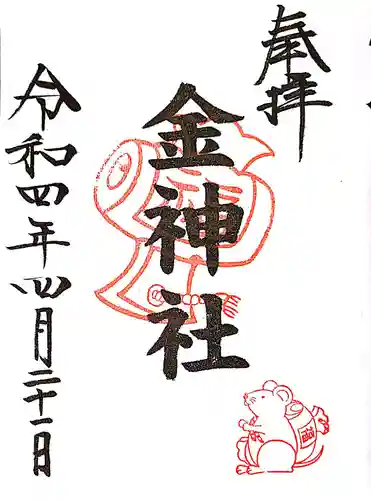 奉拝
金神社
令和四年四月二十一日